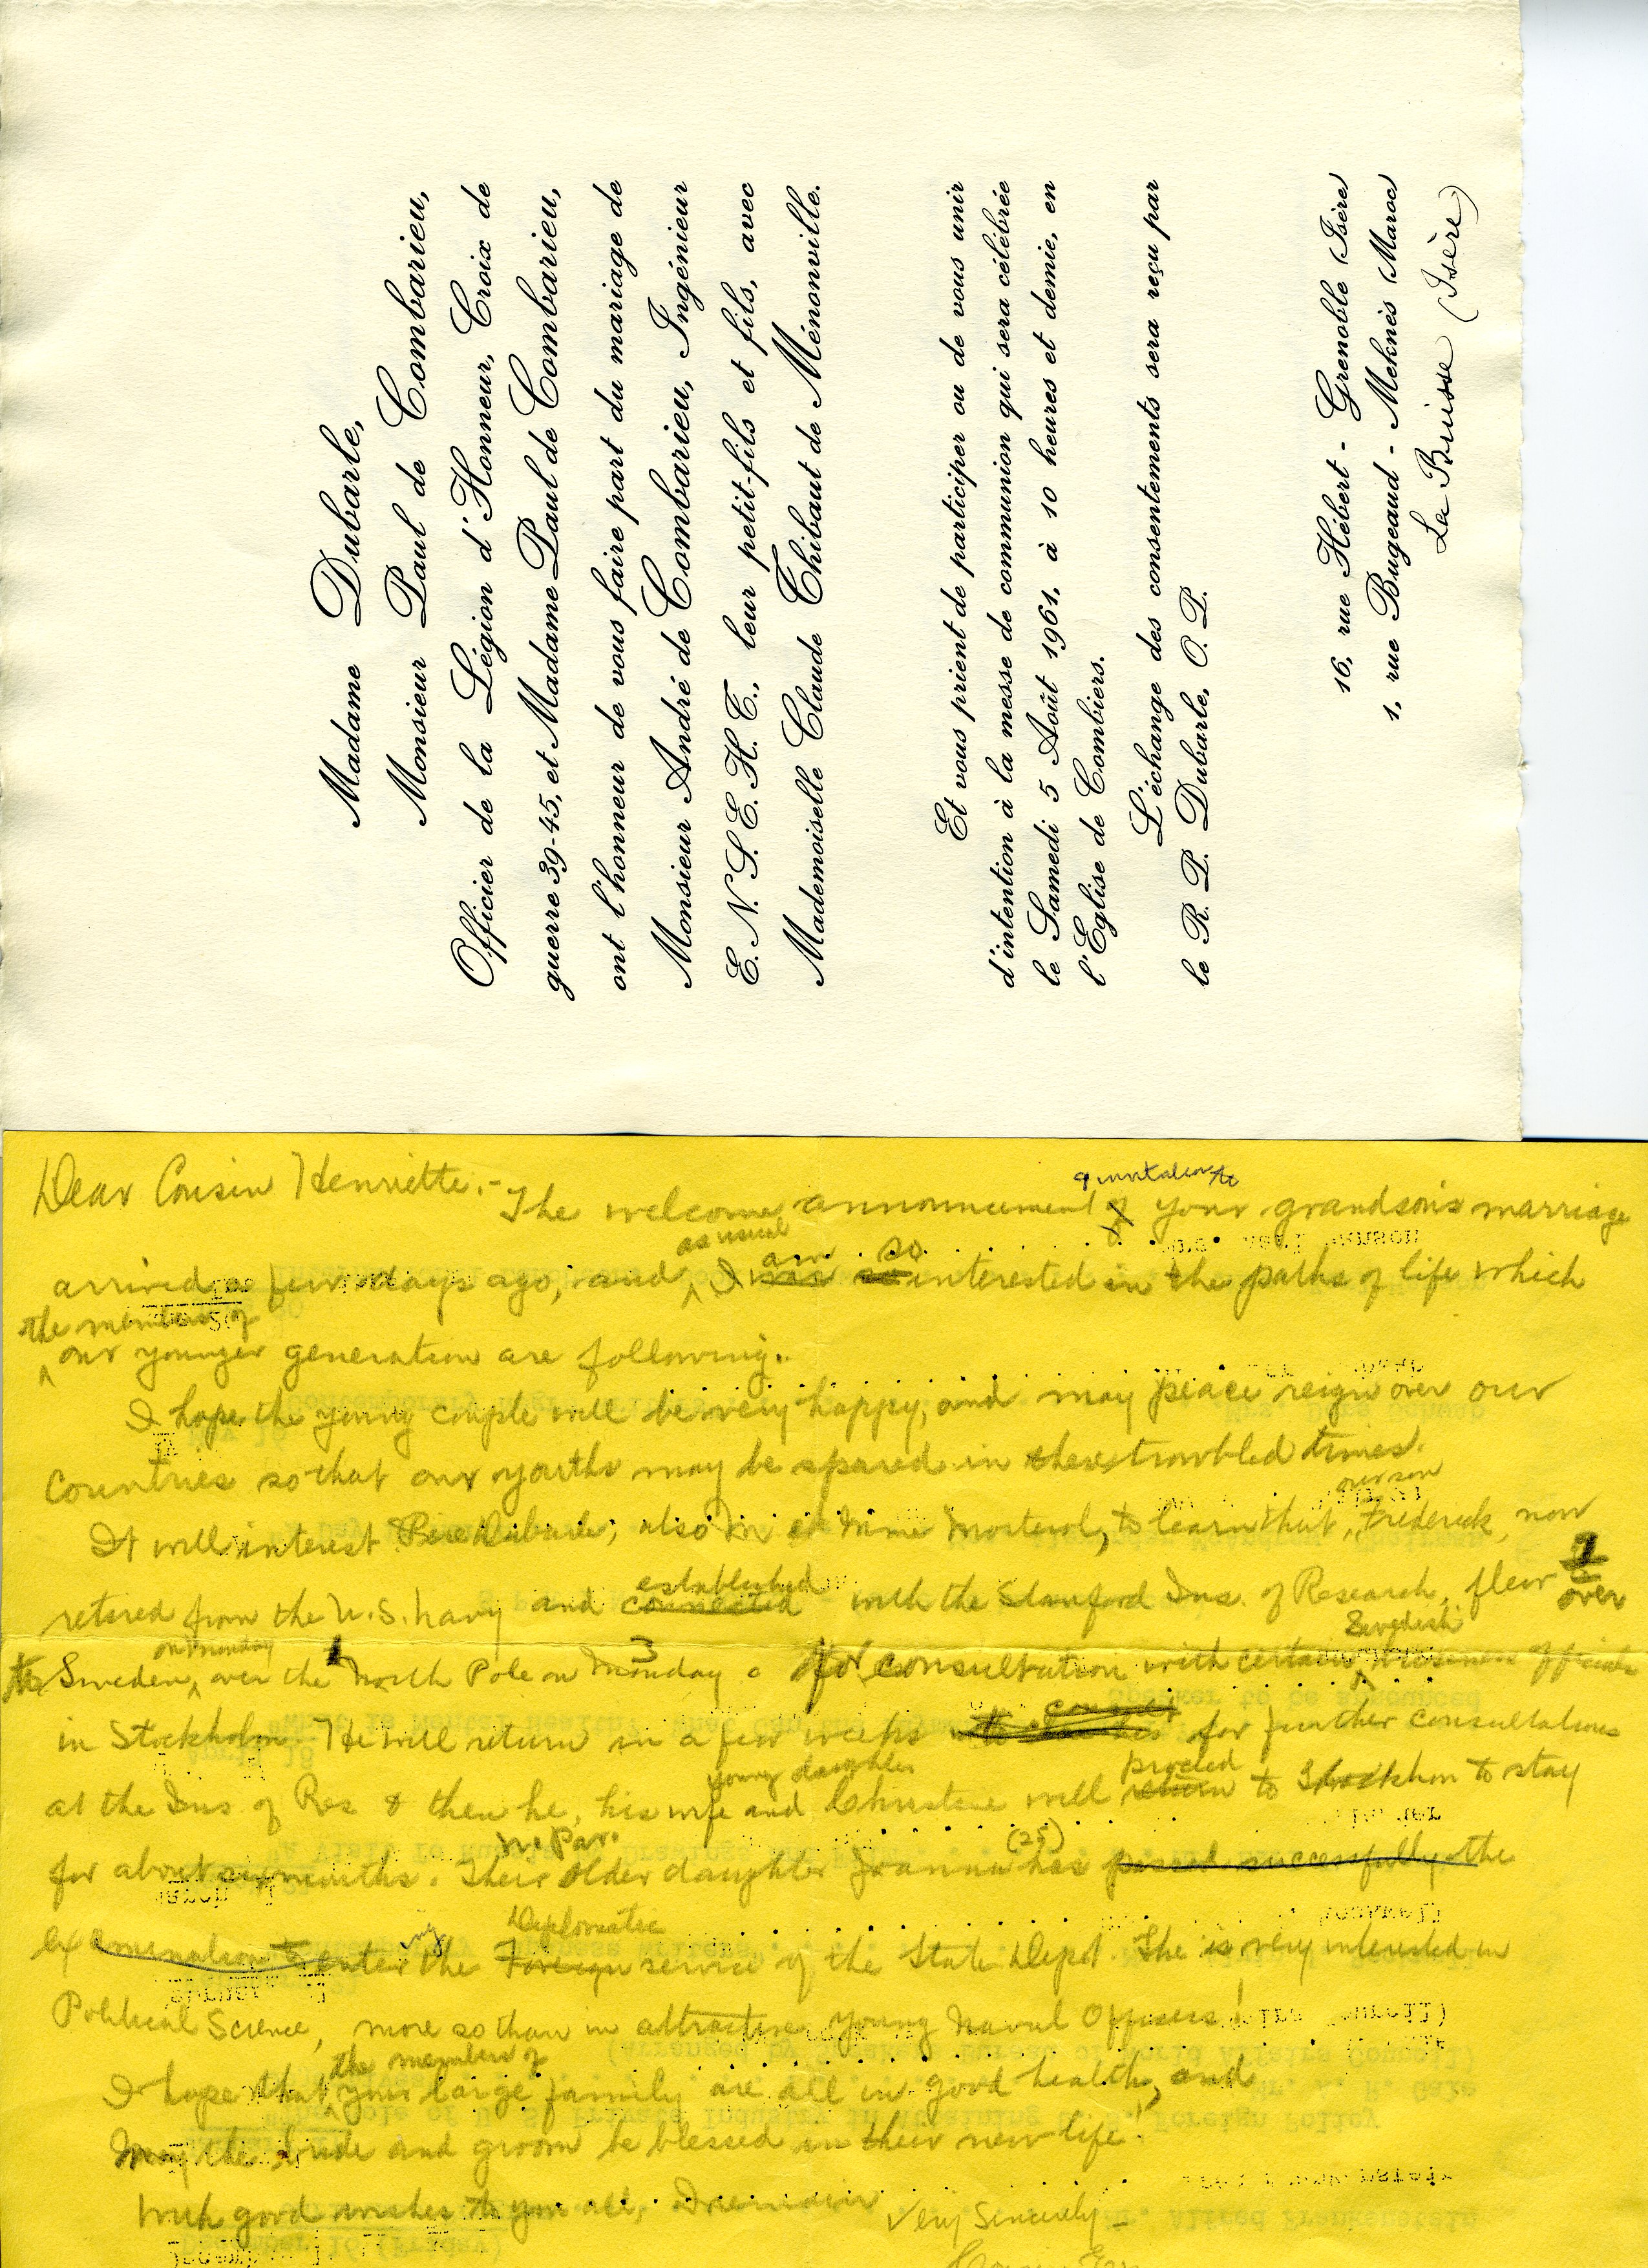 Madame Dubarle,
Monsieur Paul de Combarieu,
Officier de la Légion d'Honneur, Croix de
guerre 39-45, et Madame Paul de Combarieu,
ont l'honneur de vous faire part du mariage de
Monsieur André de Combarieu, Ingénieur
E. N. S. E. H. T., leur petit-fils et fils, avec
Mademoiselle Claude Thibaut de Ménonville.
Et vous prient de participer ou de vous unir
d'intention à la messe de communion qui sera célébrée
le Samedi 5 Août 1961, à 10 heures et demie, en
l'Eglise de Combiers.
L'échange des consentements sera reçu par
le R. P. Dubarle, O. P.
16, rue Hébert - Grenoble (Isère)
1, rue Bugeaud - Meknès (Maroc)
La Buisse (Isère)
Dear Cousin Henriette:-
The welcome announcement of your grandson's marriage
as usual
am so
arrived a few days ago, and I was so interested in the paths of life which
the members of
our younger generation are following.
I hope the young couple will be very happy, and may peace reign over our
countries so that our youths may be spared in these troubled times.
our son
It will interest Pere Dubarle, also M et Mme to learn that, Frederick, now
established
retired from the U.S. Navy and connected with the Stanford Ins. of Research, flew
over
on Monday
Swedish
to Sweden, over the North Pole on Monday for consultation with certain business officials
consult
in Stockholm. He will return in a few weeks for further consultations
young daughter
proceed
at the Ins of Res & then he, his wife and Christine will return to Stockholm to stay
(25)
for about six months. Their older daughter Joanna has passed successfully the
Diplomatic
ing
examination to enter the Foreign service of the State Dept. She is very interested in
Political Science, more so than in attractive young Naval Officers!
the members of
I hope that your large family are all in good health, and
may the bride and groom be blessed in their new life!
With good wishes to you all, I remain
Very Sincerely-